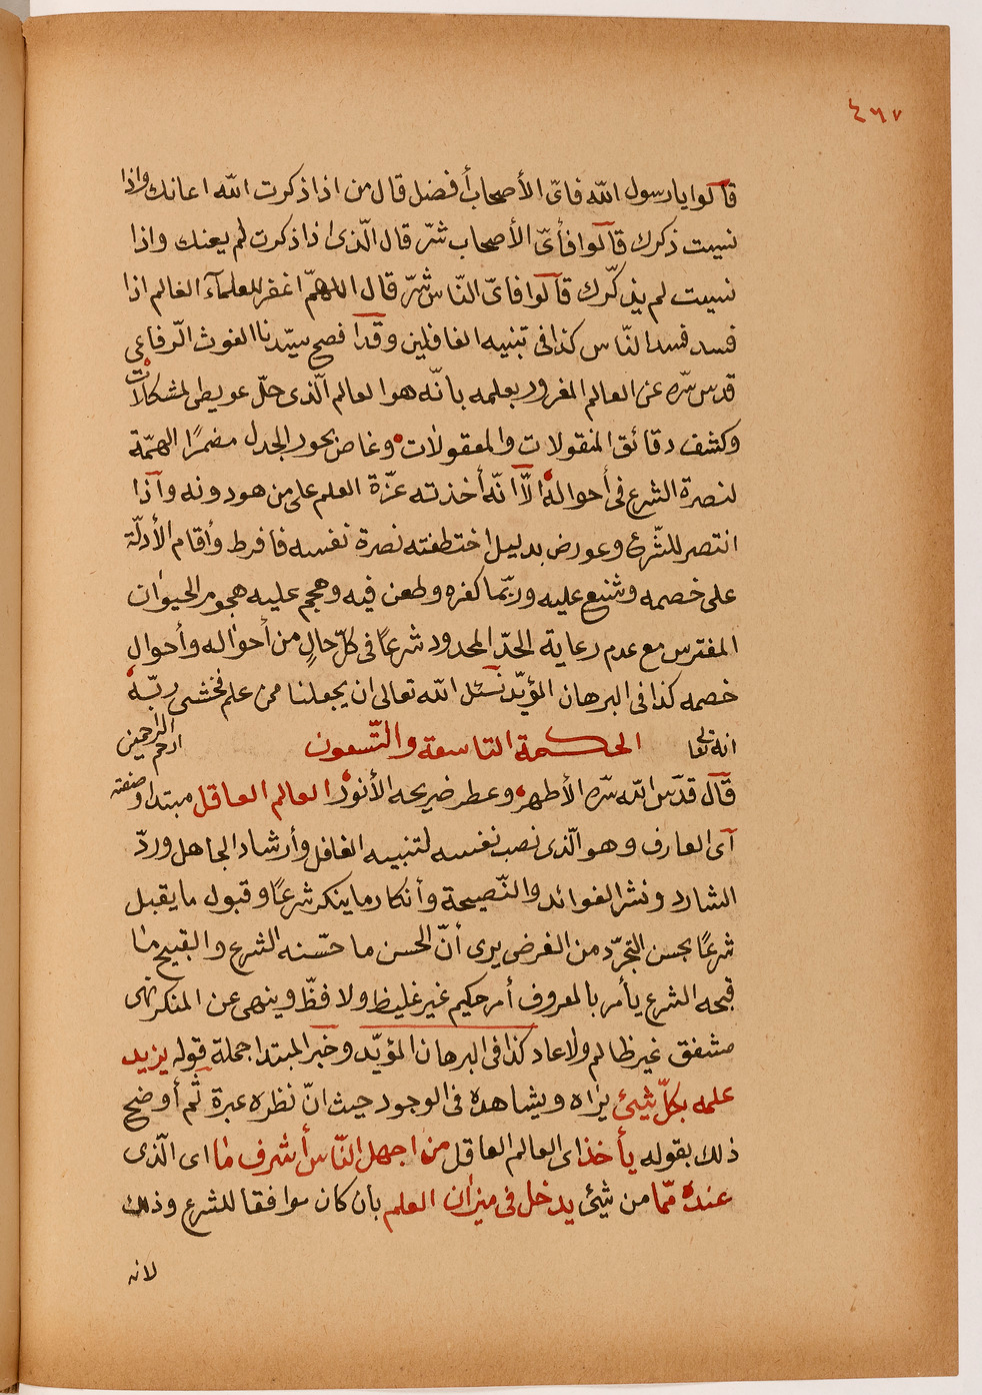 ٤٦٧
قالوا يا رسول الله فاىّ الأصحاب أفضل قال من اذا ذكرت الله اعانك واذا
نسيت ذكرك قالوا فأىّ الأصحاب شرّ قال الّذى اذا ذكرت لم يعنك واذا
نسيت لم يذكّرك قالوا فاىّ النّاس شرّ قال اللهمّ اغفر للعلمآء العالم اذا
فسد فسد النّاس كذا فى تنبيه الغافلين وقد افصح سيّدنا الغوث الرّفاعى
قدس سّره عن العالم المغرور بعلمه بانّه هو العالم الّذى حلّ عويطى لمشكلات
وكشف دقائق المنقولات والمعقولات وغاص بحور الجدل مضمرًا الهمّة
لنصرة الشرع فى أحواله الّا انّه أخذته عزّة العلم على من هو دونه واذا
انتصر للشّرع وعورض بدليل اختطفته نصرة نفسه فافرط وأقام الأدلّة
على خصمه وشنيع عليه وربّما كفره وطعن فيه وهجم عليه هجوم الحيوان
المفترس مع عدم رعاية الحدّ المحدود شرعًا فى كلّ حالٍ من أحواله وأحوال
خصمه كذا فى البرهان المؤيّد نسئل الله تعالى ان يجعلنا ممن علم فخشى ربّه
انه تعالى ارحم الراحمين
الحكمة التاسعة والتّسعون
قال قدّس الله سّره الأطهر وعطر ضريحه الأنور العالم العاقل مبتدا وصفته
آى العارف وهو الّذى نصب نفسه لتنبيه الغافل وأرشاد الجاهل وردّ
الشارد ونشر الفوائد والنّصيحة وأنكار ما ينكر شرعًا وقبول ما يقبل
شرعًا بحسن التجرّد من الغرض يرى أنّ الحسن ما حسّنه الشرع والقبيح ما
قبحه الشرع يأمر بالمعروف أمر حكيم غير غليظ ولا فظّ وينهى عن المنكر نهى
مشفق غير ظالم ولا عاد كذا فى البرهان المؤيّد وخبر المبتدا جملة قوله يزيد
علمه بكلّ شيئ يراه ويشاهده فى الوجود حيث انّ نظره عبرة ثم أوضح
ذلك بقوله يأخذ اى العالم العاقل من اجهل النّاس أشرف ما اى الّذى
عنده ممّا من شيئ يدخل فى ميزان العلم بان كان موافقا للشرع وذلك
لانه